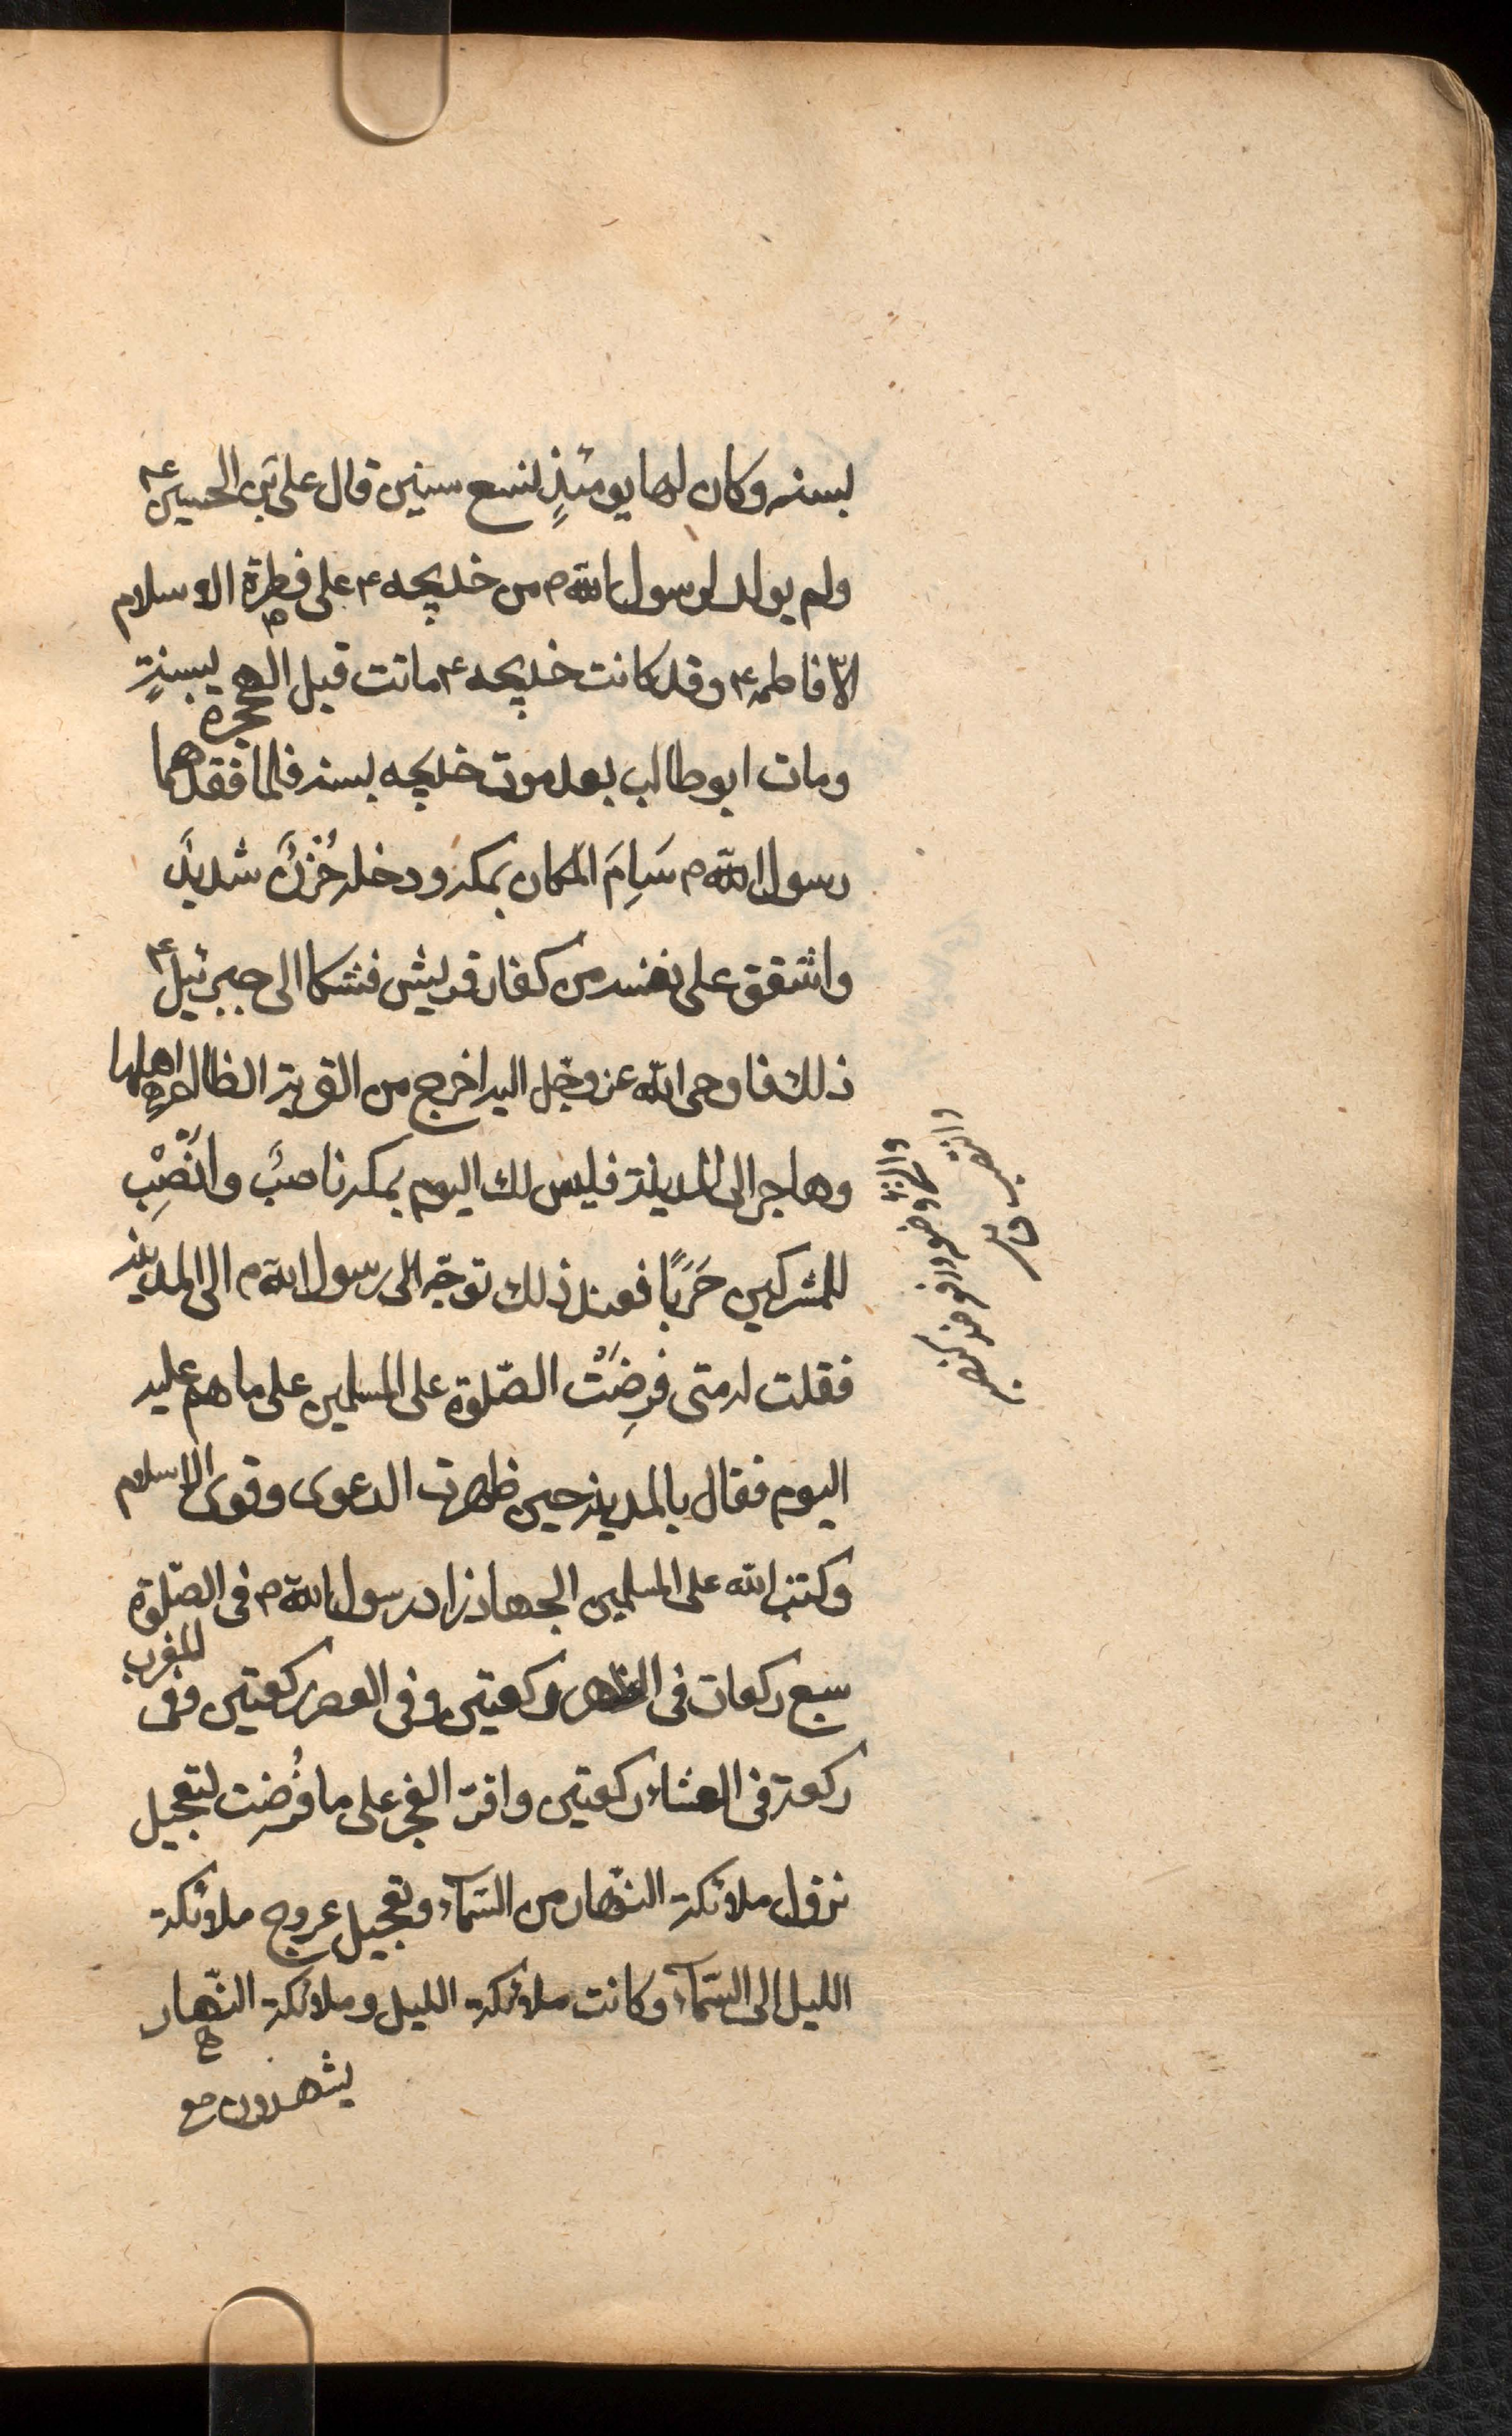 بسنه وكان لها يومئذٍ تسع سنين قال على بن الحسين ع
ولم يولد لرسول الله ص من خديجه ع على فطرة الاسلام
الّا فاطمه ع وقد كانت خديجه ع ماتت قبل الهجرة بسنةٍ
ومات ابوطالب بعد موت خديجه بسنه فلما فقدهما
رسول الله ص سَاِمَ المكان بمكه ودخله حُزْنٌ شديدٌ
واشفق على نفسه من كفار قريش فشكا الى جبرئيل ع
ذلك فاوحى الله عز وجّل اليه اخرج من القرية الظالم اهلها
وهاجر الى المدينة فليس لك اليوم بمكه ناصرٌ وانْصِبْ
للمشركين حَرَبًا فعند ذلك توجّه الى رسول الله ص الى المدينه
فقلت له متى فرِضَتْ الصّلوة على المسلمين على ما هم عليه
اليوم فقال بالمدينه حين ظهرت الدعوى وقوى الاسلام
وكتب الله على المسلمين الجهاد زاد رسول الله ص فى الصّلوة
سبع ركعات فى الظهر ركعتين وفى العصر ركعتين وفى المغرب
ركعة فى العشاء ركعتين واقرّ الفجر على ما فُرِضت لتعجيل
نزول ملائكة النّهار من السّماء وتعجيل عروج ملائكة
الليل الى السّماء وكانت ملائكة الليل وملائكة النّهار
يشهدون مع